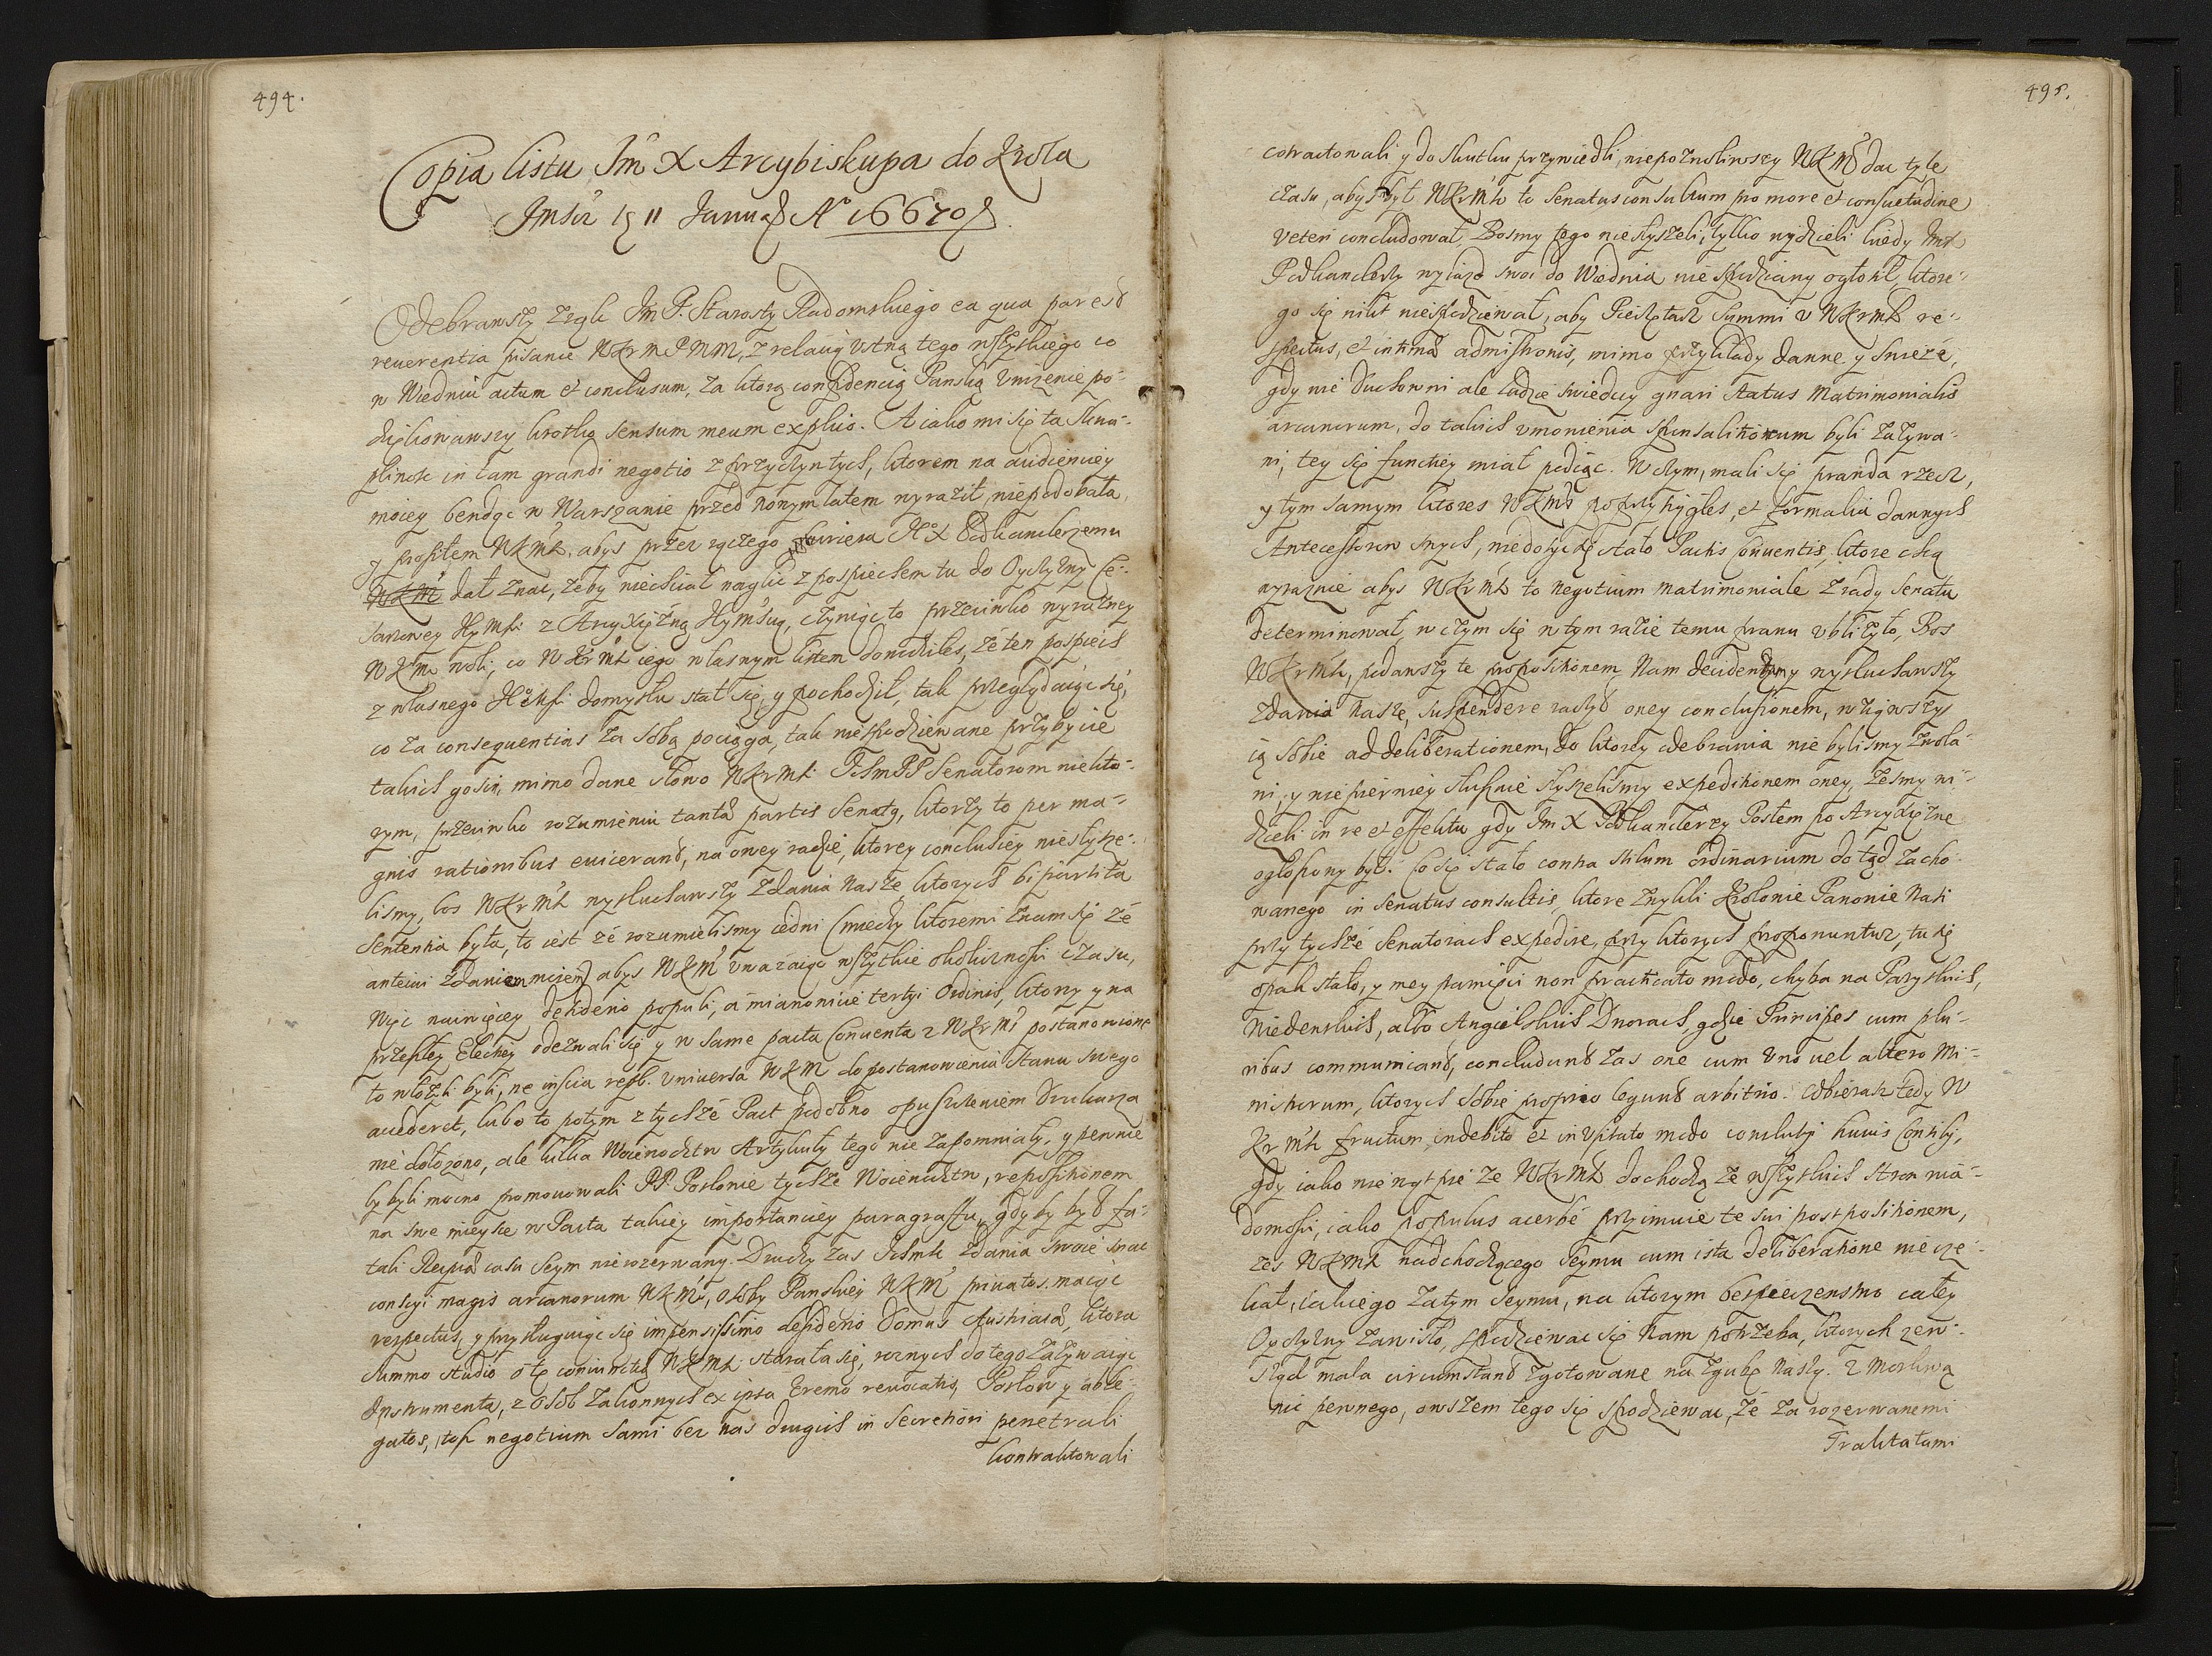 494.
Copia listu Jm X Arcybiskupa do Krola
Jmsci 11 Januar A 16670
Odebrawszy z rąk Jm P. Starosty Radomskiego ea qua par est
reuerentia pisanie WKrm PNM, z relacią ustną tego wszystkiego co
w Wiedniu actum et conclusum, za ktorą confidencią Panską uniżenie po-
dziękowawszy krotko sensum meum explico. A iako mi się ta Skwa-
pliwosc in tam grandi negotio z przyczyn tych, ktorem na audiencyey
moiey będąc w Warszawie przed nowym latem wyraził, niepodobała,
y prosiłem WKMsc, abys przez rączego kuriera Jm X Podkanclerzemu
WKM dał znac, żeby niechciał naglić z pospiechem tu do Oyczyzny Ce-
sarzowey Hymsci z Arcyxiężną Hymscią, czyniąc to przeciwko wyrazney
WKM woli, co WKrMsc iego własnym listem dowiodłes, że ten pospiech
z własnego Jm domysłu stał się, y pochodził, tak przeglądaiąc się,
co za consequentias za sobą pociąga, tak niespodziewane przybycie
takich gosci, mimo dane słowo WKrMsci PP Senatorom niekto-
rym, przeciwko rozumieniu tantae partis Senatus, ktorzy to per ma-
gnis rationibus euicerant, na oney radzie, ktorey conclusiey niesłysze-
lismy, bos WKrMsc wysłuchawszy zdania nasze ktorych bipartita
Sententia była, to iest że rozumielismy iedni (miedzy ktoremi znam się że
anteiui zdaniem moiem) abys WKM uważaiąc wszytkie okolicznosci czasu,
Więc naiwięcey desiderio populi, a mianowicie tertii Ordinis, ktory y na
przeszłey Elekcyey odezwali się y w same pacta Conuenta z WKrM postanowione
to włożyli byli, ne inscia repb. uniuersa WKM do postanowienia Stanu swego
accederet, lubo to potym z tychże Pact podobno opuszczeniem Drukarza
nie dołożono, ale kilka Woiewodztw Artykuły tego nie zapomniały, y pewnie
by byli mocno promouowali PP. Posłowie tychże Woiewodztw, repositionem
na swe mieysce w Pacta takiey importancyey paragraffu, gdyby był fa-
tali Reipub casu Seym nierozerwany. Drudzy zas Ichmsc zdania swoie
consyi magis arcanorum WKM, osoby Panskiey WKM priuatos maiąc
respectus, y przysługuiąc się impensissimo desiderio Domus Austriacae, ktora
summo studio o tę coniunctią WKMsc starała się, roznych do tego zażywaiąc
Instrumenta, z osob zakonnych ex ipsa Eremo reuocatis, Posłow y able-
gatos, negotium sami bez nas drugich in secretiori penetrali
kontraktowali
495.
cotractowali y do skutku przywiedli, niepozwoliwszy WKM dac tyle
czasu, abys był WKrMsc to Senatusconsultum pro more et consuetudine
veteri concludował, Bosmy tego niesłyszeli, tylko widzieli kiedy Jm X
Podkanclerzy wyiazd swoi do Wiednia nie spodziany ogłosił, ktore-
go się nikt niespodziewał, aby Pieczętarz Summi u WKrmsc re-
spectus, et intimae admissionis, mimo przykłady dawne y swieże,
gdy nie duchowni ale ludzie swiedcy gnari status matrimonialis
arcanorum, do takich umowienia sponsalitiorum byli zażywa-
ni, tey się functiey miał podiąc. W czym, mali się prawda rzec,
y tym samym ktores WKM poprzysiągłes, et formalia dawnych
Antecessorow swych, niedosyc się stało Pactis conuentis, ktore chcą
wyraznie abys WKrMsc to negotium matrimoniale z rady Senatu
determinował, w czym się w tym razie temu prawu ubliżyło, Bos
WKrMsc, podawszy te propositionem Nam decidendam y wysłuchawszy
zdania nasze, suspendere raczył oney conclusionem, wziąwszy
ią sobie ad deliberationem, do ktorey odebrania nie bylismy zwoła-
ni, y nie pierwiey słusznie słyszelismy expeditionem oney, żesmy wi-
dzieli in re et effektu gdy Jm X Podkanclerzy Posłem po Arcyxiężne
ogłoszony był. Co się stało contra stilum ordinarium do tąd zacho-
wanego in Senatus consultis, ktore zwykli Krolowie Panowie Nasi
przy tychże Senatorach expedire, przy ktorych proponuntur, tu się
opak stało, y mey pamięci non practicato modo, chyba na Paryskich,
Wiedenskich, albo Angielskich Dworach, gdzie Principes cum plu-
ribus communicant, concludunt zas one cum uno uel altero Mi-
nistrorum, ktorych sobie proprio legunt arbitrio. Odbierasz tedy W
KrMsc fructum, indebito et inusitato modo conclusi huius Consilij,
gdy iako niewątpie że WKrMsc dochodzą ze wszytkich stron wia-
domosci, iako populus acerbe przimuie te sui postpositionem,
żes WKrmsc nadchodzącego Seymu cum ista deliberatione nie cze-
kał, iakiego zatym Seymu, na ktorym bespieczenstwo całey
Oyczyzny zawisło, spodziewac się Nam potrzeba, ktorych zew-
sząd mala circumstant zgotowane na zgubę Naszę. Z Moskwą
nic pewnego, owszem tego się spodziewac, że za rozerwanemi
Traktatami